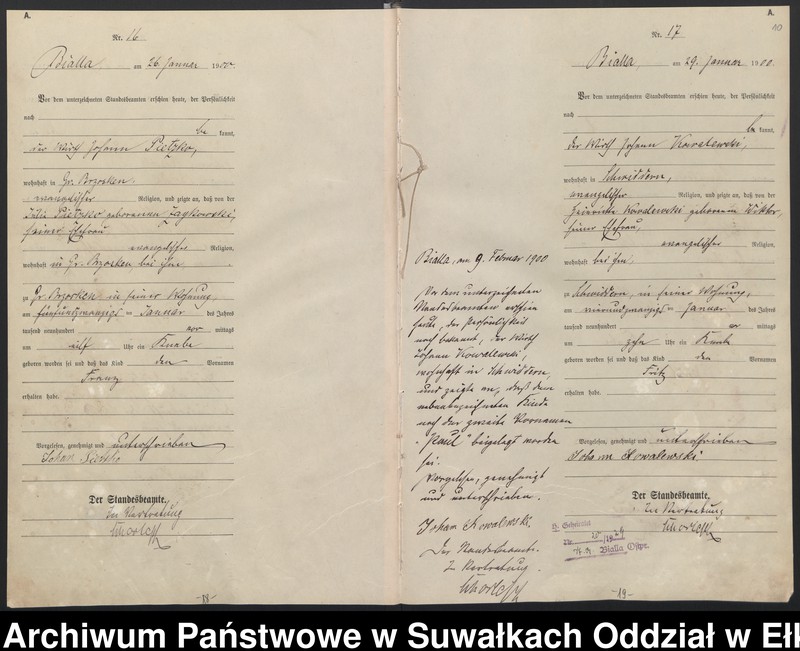 A.
Nr. 16
Bialla am 26 Januar 1900
Vor dem unterzeichneten Standesbeamten erschien heute, der Persönlichkeit
nach
be kannt,
der Wirth Johann Pietzko,
wohnhaft in Gr. Brzosken.
evangelischer Religion, und zeigte an, daß von der
Julie Pietzko geborenen Zaykowski,
seiner Ehefrau
evangelischer Religion,
wohnhaft in Gr. Brzosken bei ihm
zu Gr. Brzosken in seiner Wohnung
am fünfundzwanzigsten Januar des Jahres
tausend neunhundert vor mittags
um elf Uhr ein Knabe
geboren worden sei und daß das Kind den Vornamen
Franz
erhalten habe.
Vorgelesen, genehmigt und unterschrieben
Johan Pietzko
Der Standesbeamte,
In Vertretung
-18-
Bialla, am 9. Februar 1900
Vor dem unterzeichneten
Standesbeamten erschien
heute, der Persönlichkeit
nach bekannt, der Wirth
Johann Kowalewski,
wohnhaft in Schwiddern,
und zeigte an, daß dem
nebenbezeichneten Kinde
noch der zweite Vornamen
"Paul" beigelegt worden
sei.
Vorgelesen, genehmigt
und unterschrieben.
Johan Kowalewski.
Der Standesbeamte.
In Vertretung
A.
10
Nr. 17
Bialla, am 29. Januar 1900.
Vor dem unterzeichneten Standesbeamten erschien heute, der Persönlichkeit
nach
be kannt,
der Wirth Johann Kowalewski,
wohnhaft in Schwiddern,
evangelischer Religion, und zeigte an, daß von der
Heinriette Kowalewski geborenen Wiktor,
seiner Ehefrau,
evangelischer Religion,
wohnhaft bei ihm
zu Schwiddern, in seiner Wohnung,
am vierundzwanzigsten Januar des Jahres
tausend neunhundert vor mittags
um zehn Uhr ein Knabe
geboren worden sei und daß das Kind den Vornamen
Fritz
erhalten habe.
Vorgelesen, genehmigt und unterschrieben
Johann Kowalewski
Der Standesbeamte,
In Vertretung
Bialla Ostpr.
-19-
Archiwum Państwowe w Suwałkach Oddział w Ełk